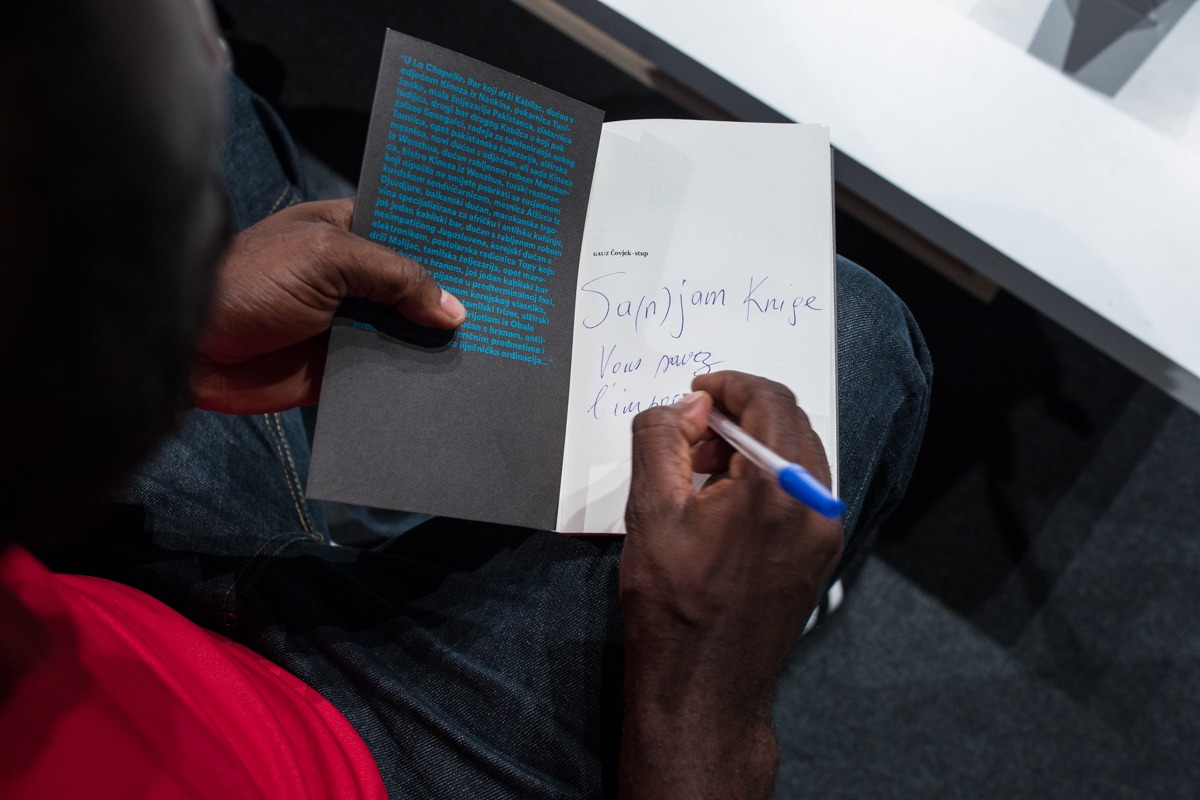 "U La Chapelle. Bar koji drži Kabilac, dućan s
odjećom Kineza iz Nankina, pekarnica Tuni-
žanka, mala željezarija Pakistanca, zlatarnica
Indijca, drugi bar drugog Kabilca u koji pak
zalaze Senegalci, radnja za telefoniranje nekog
Tamilca, opet pakistanska željezarija, alžirska
mesnica, novi dućan s odjećom, ali sada Kineza
iz Wenzhua, dućan rabljenom robom Marokan-
ca, bistro Kineza iz Wenzhua, turski restoran
koji nipošto ne smijete pobrkati sa susjednom
kurdskom sendvičarnicom, mesnica Alžirca iz
Djurdjure, balkanski dućan, marokanska trgo-
vina specijalizirana za afričku i antilsku kuhinju,
još jedan kabilski bar, dućan s rabljenom robom
nesimpatičnog Jugoslavena, korejski dućan s
elektronikom, postolarska radionica Topy koju
drži Malijac, tamilska željezarija, opet maro-
dućan s hranom, još jedan kabilski bar
pijance u predterminalnoj fazi,
hranom korejskog vlasnika,
tamilski frizer, alžirski
Obale
s hranom, antil-
predmetima i
liječnička ordinacija..."
GAUZ Čovjek-stup
Sa(n)jam Knige
Vous savez